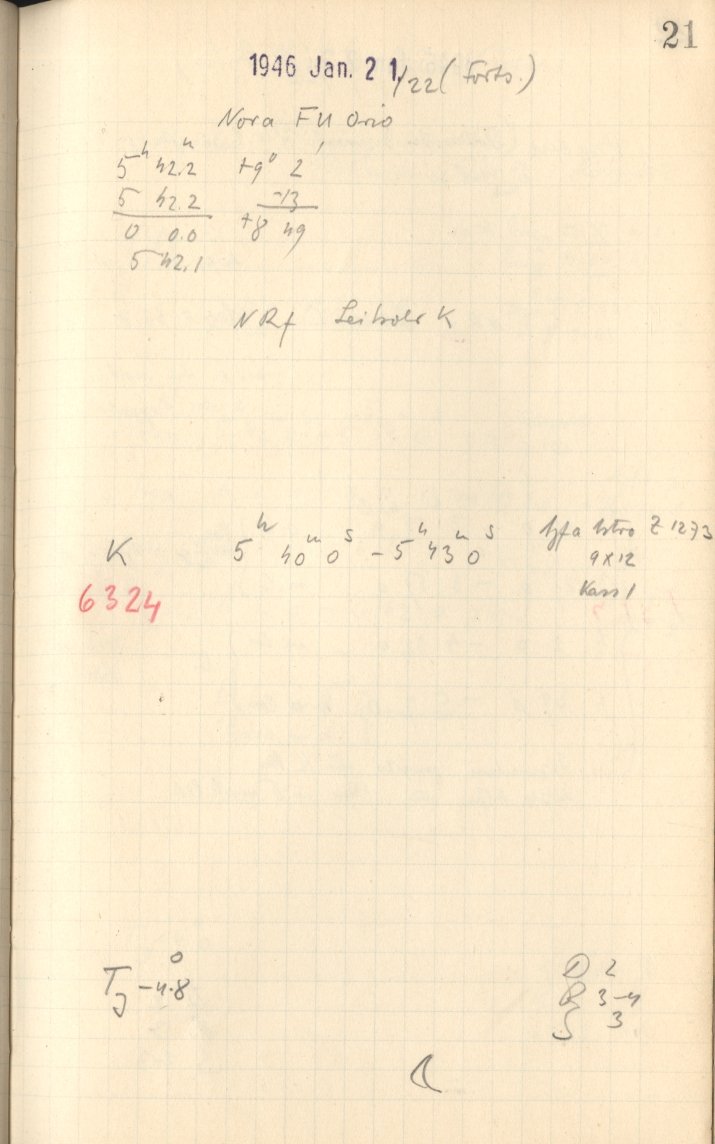 21
1946 Jan. 21./22 (Forts.)
Nova FU Orio
5ʰ 42.2ᵐ +9° 2'
5 42.2 -13
0 0.0 +8 49
5 42.1
NRf Leitrohr K
K 5ʰ 40ᵐ 0ˢ - 5ʰ 43ᵐ 0ˢ Agfa Astro Z 1273
9x12
6324 Kass 1
T_J -4.8° D 2
R 3-4
S 3